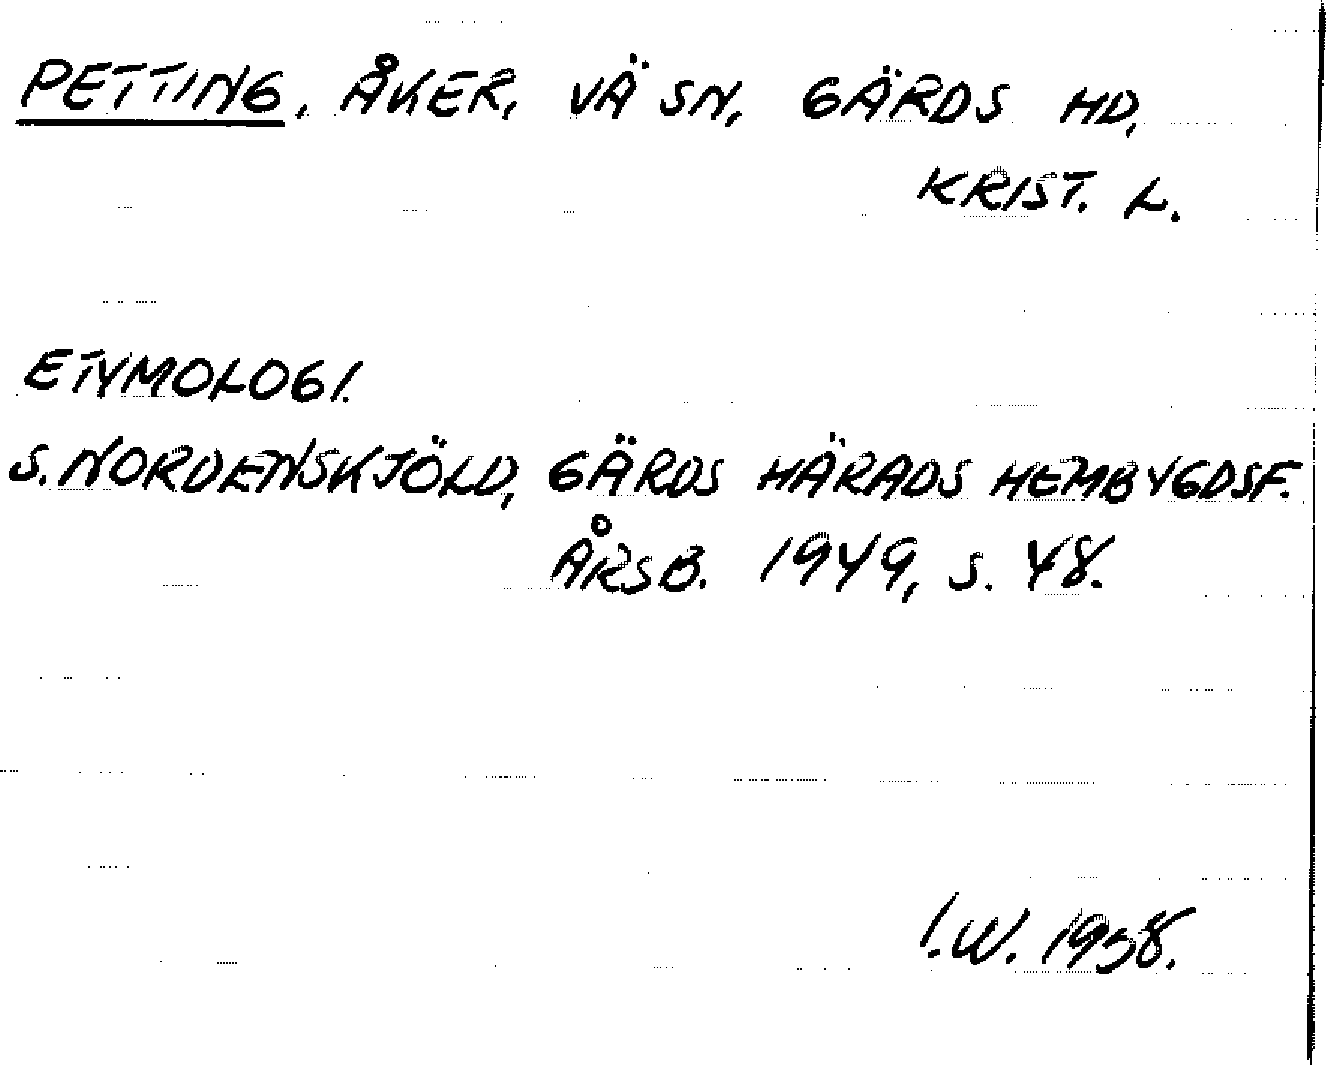 PETTING, ÅKER, VÄ SN, GÄRDS HD,
KRIST. L.
ETYMOLOGI.
S. NORDENSKJÖLD, GÄRDS HÄRADS HEMBYGDSF.
ÅRSB. 1949, S. 48.
I.W. 1958.